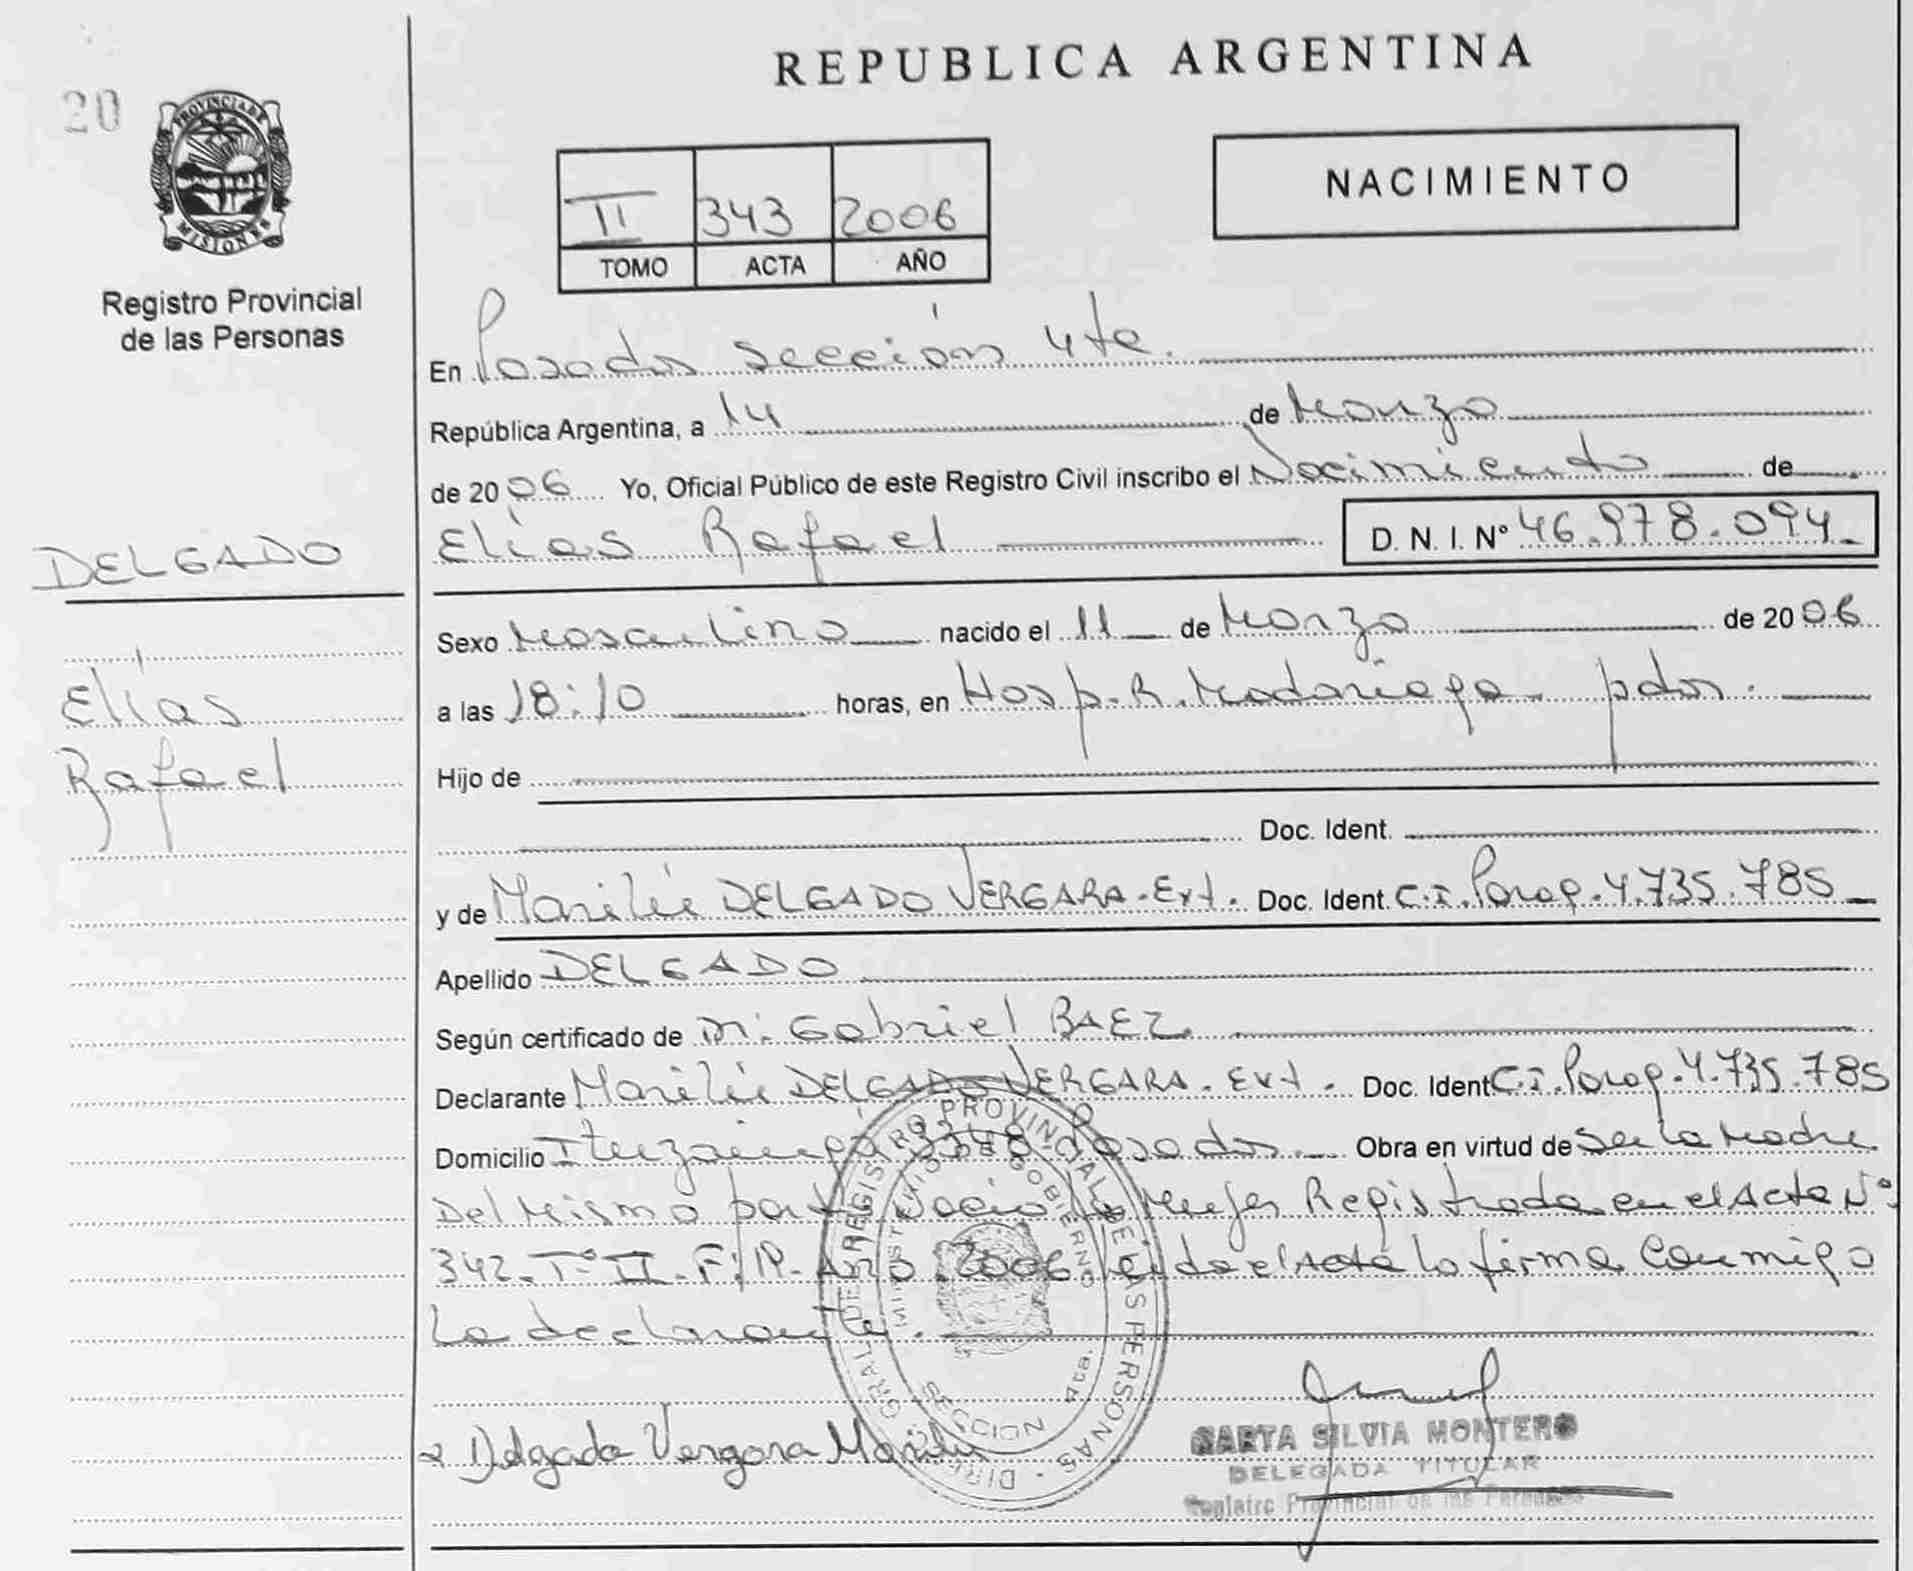 REPUBLICA ARGENTINA
20
PROVINCIA DE
MISIONES
Registro Provincial
de las Personas
II 343 2006
TOMO ACTA AÑO
NACIMIENTO
En Posadas sección 4ta.
República Argentina, a 14 de Marzo
de 2006 Yo, Oficial Público de este Registro Civil inscribo el Nacimiento de
DELGADO
Elías Rafael D. N. I. Nº 46.978.094.
Sexo Masculino nacido el 11 de Marzo de 2006
Elías
a las 18:10 horas, en Hosp. R. Madariaga. pdas.
Rafael
Hijo de
Doc. Ident.
y de Marilú DELGADO VERGARA. Ext. Doc. Ident. C.I. Parag. 4.735.785
Apellido DELGADO
Según certificado de Gabriel BAEZ
Declarante Marilú DELGADO VERGARA. Ext. Doc. Ident. C.I. Parag. 4.735.785
Domicilio Ituzaingó 3348 Posadas. Obra en virtud de Ser la Madre
Del Mismo parto Nació la Mujer Registrada en el Acta Nº
342. Tº II. Año 2006 Leida el Acta la firma Conmigo
La declarante.
DIRECCION GRAL. DE REGISTRO PROVINCIAL DE LAS PERSONAS
MINISTERIO DE GOBIERNO
SECCION 4ta.
Delgado Vergara Marilú
MARTA SILVIA MONTERO
DELEGADA TITULAR
Registro Provincial de las Personas